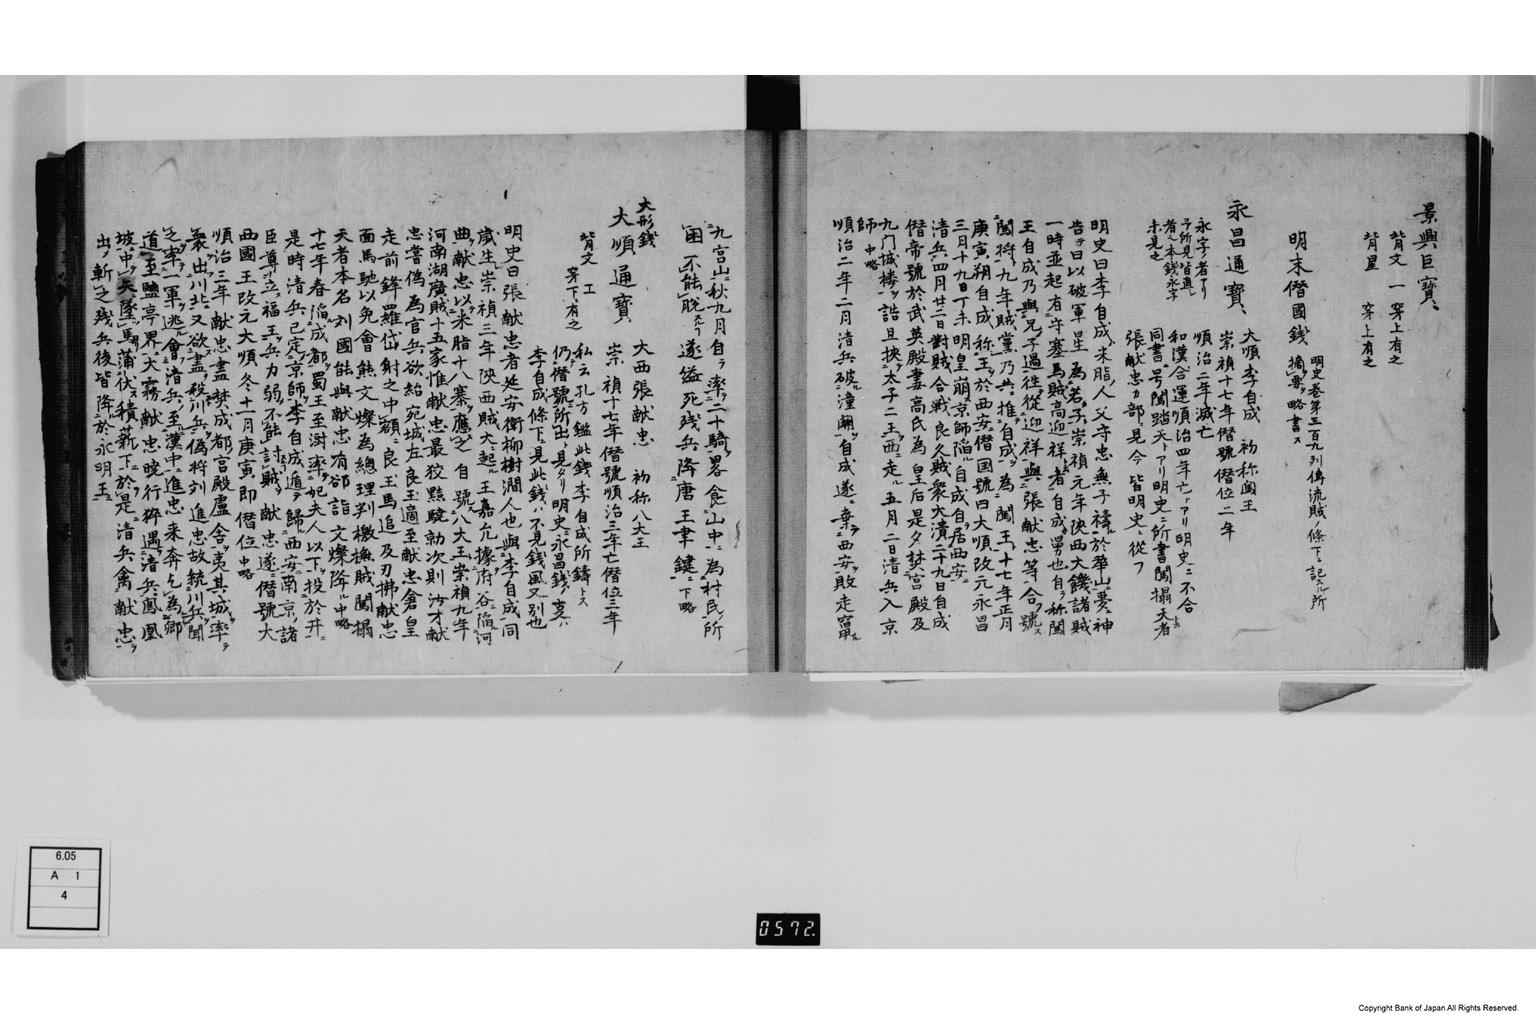 景興巨寶、
背文 一 穿上有之
背星 穿上有之
明末僭國錢 明史巻第三百九列傳流賊ノ條下ニ記スル所
摘要略書ス
永昌通寶、
大順李自成 初称闖王
崇禎十七年僭號僭位二年
順治二年滅亡
永字者アリ
予所見皆直シ
者之本錢永字
未見之
和漢合運順治四年亡トアリ明史ニ不合
同書ニ号闖踏天トアリ明史ニ所書闖揭天者
張献忠カ部ニ見今皆明史ニ從フ
明史曰李自成米脂ノ人父守忠無子禱於華山夢神
告ヲ曰以破軍星為若子崇禎元年陜西大饑諸賊
一時並起有守塞馬賊高迎祥者自成舅也自ラ称闖
王自成乃與兄子過往從迎祥與張献忠等合號ス
闖将、九年賊黨乃共ニ推自成為闖王十七年正月
庚寅朔自成称王於西安僭国號曰大順改元永昌
三月十九日丁未明皇崩京師陥自成自居西安
清兵四月廿二日對賊合戦良久賊衆大潰二十九日自成
僭帝號於武英殿妻高氏為皇后是夕焚宮殿及
九门城楼詰旦挾太子二王西走五月二日清兵入京
師中略
順治二年二月清兵破潼關自成遂棄西安敗走竄
九宮山秋九月自ラ率二十騎畧食山中為村民所
困不能脱遂縊死残兵降唐王聿鍵下略
大形錢
大順通寶、
背文 工 穿下有之
大西張献忠 初称八大王
崇禎十七年僭號順治三年亡僭位三年
私云孔方鑑此錢李自成所鑄トス
仍僭號所出ヲ見タリ明史ニ永昌錢ヲ莫ハ
李自成條下ニ見此錢ハ不見錢風又別也
明史曰張献忠者延安衛柳樹澗人也與李自成同
歳生崇禎三年陜西賊大起王嘉允據府谷陥河
曲献忠以米脂十八寨應之自號八大王崇禎九年
河南湖廣賊十五家惟献忠最狡黠驍勍次則汝才献
忠嘗偽為官兵欲紿宛城左良玉適至献忠倉皇
走前鋒羅岱射之中額良玉馬追及刃拂献忠
面馬馳以免會熊文燦為總理刊檄撫賊闖揭
天者本名刘國能與献忠有郤詣文燦降中略
十七年春陥成都蜀王至澍率妃夫人以下投於井
是時清兵已定京師李自成遁歸西安南京諸
臣尊立福王兵力弱不能討賊献忠遂僭號大
西國王改元大順冬十一月庚寅即僭位中略
順治三年献忠盡焚成都宮殿盧舍夷其城率
衆出川北又欲盡殺川兵偽将刘進忠故統川兵聞
之率一軍逃會清兵至漢中進忠来奔乞為郷
道至鹽亭界大霧献忠暁行猝遇清兵鳳凰
坡中矢墜馬蒲伏積薪下於是清兵禽献忠
出斬之残兵後皆降於永明王
6.05
A 1
4
0572.
Copyright Bank of Japan All Rights Reserved.